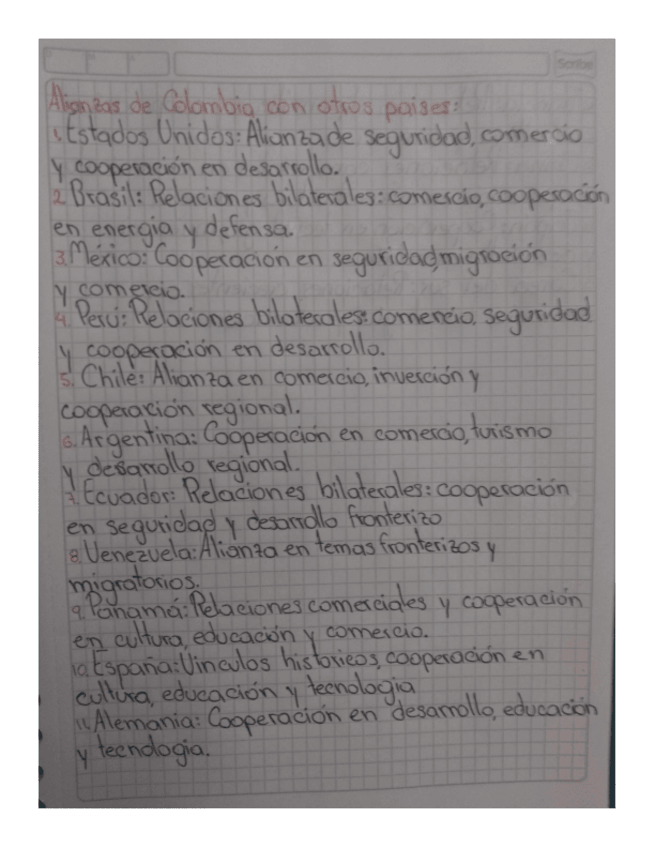 Scribe
Alianzas de Colombia con otros paises:
1. Estados Unidos: Alianza de seguridad, comercio
y cooperación en desarrollo.
2. Brasil: Relaciones bilaterales: comercio, cooperación
en energía y defensa.
3. México: Cooperación en seguridad, migración
y comercio.
4. Perú: Relaciones bilaterales: comencio, seguridad
y cooperación en desarrollo.
5. Chile: Alianza en comercio, inverción y
cooperación regional.
6. Argentina: Cooperación en comercio, turismo
y desarrollo regional.
7. Ecuador: Relaciones bilaterales: cooperación
en seguridad y desarrollo fronterizo
8. Venezuela: Alianza en temas fronterizos y
migratorios.
9. Panamá: Relaciones comerciales y cooperación
en cultura, educación y comercio.
10. España: Vinculos historicos, cooperación en
cultura, educación y tecnologia
11. Alemania: Cooperación en desarrollo, educación
y tecnologia.